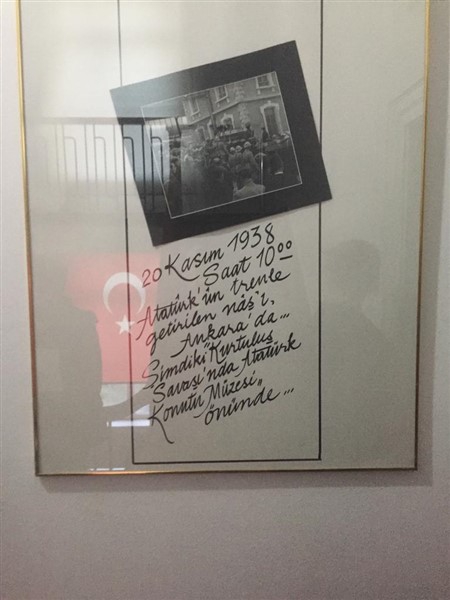 20 Kasım 1938
Saat 10°°
Atatürk'ün trenle
getirilen nâş'ı,
Ankara'da...
Şimdiki "Kurtuluş
Savaşı'nda Atatürk
Konutu Müzesi"
önünde...